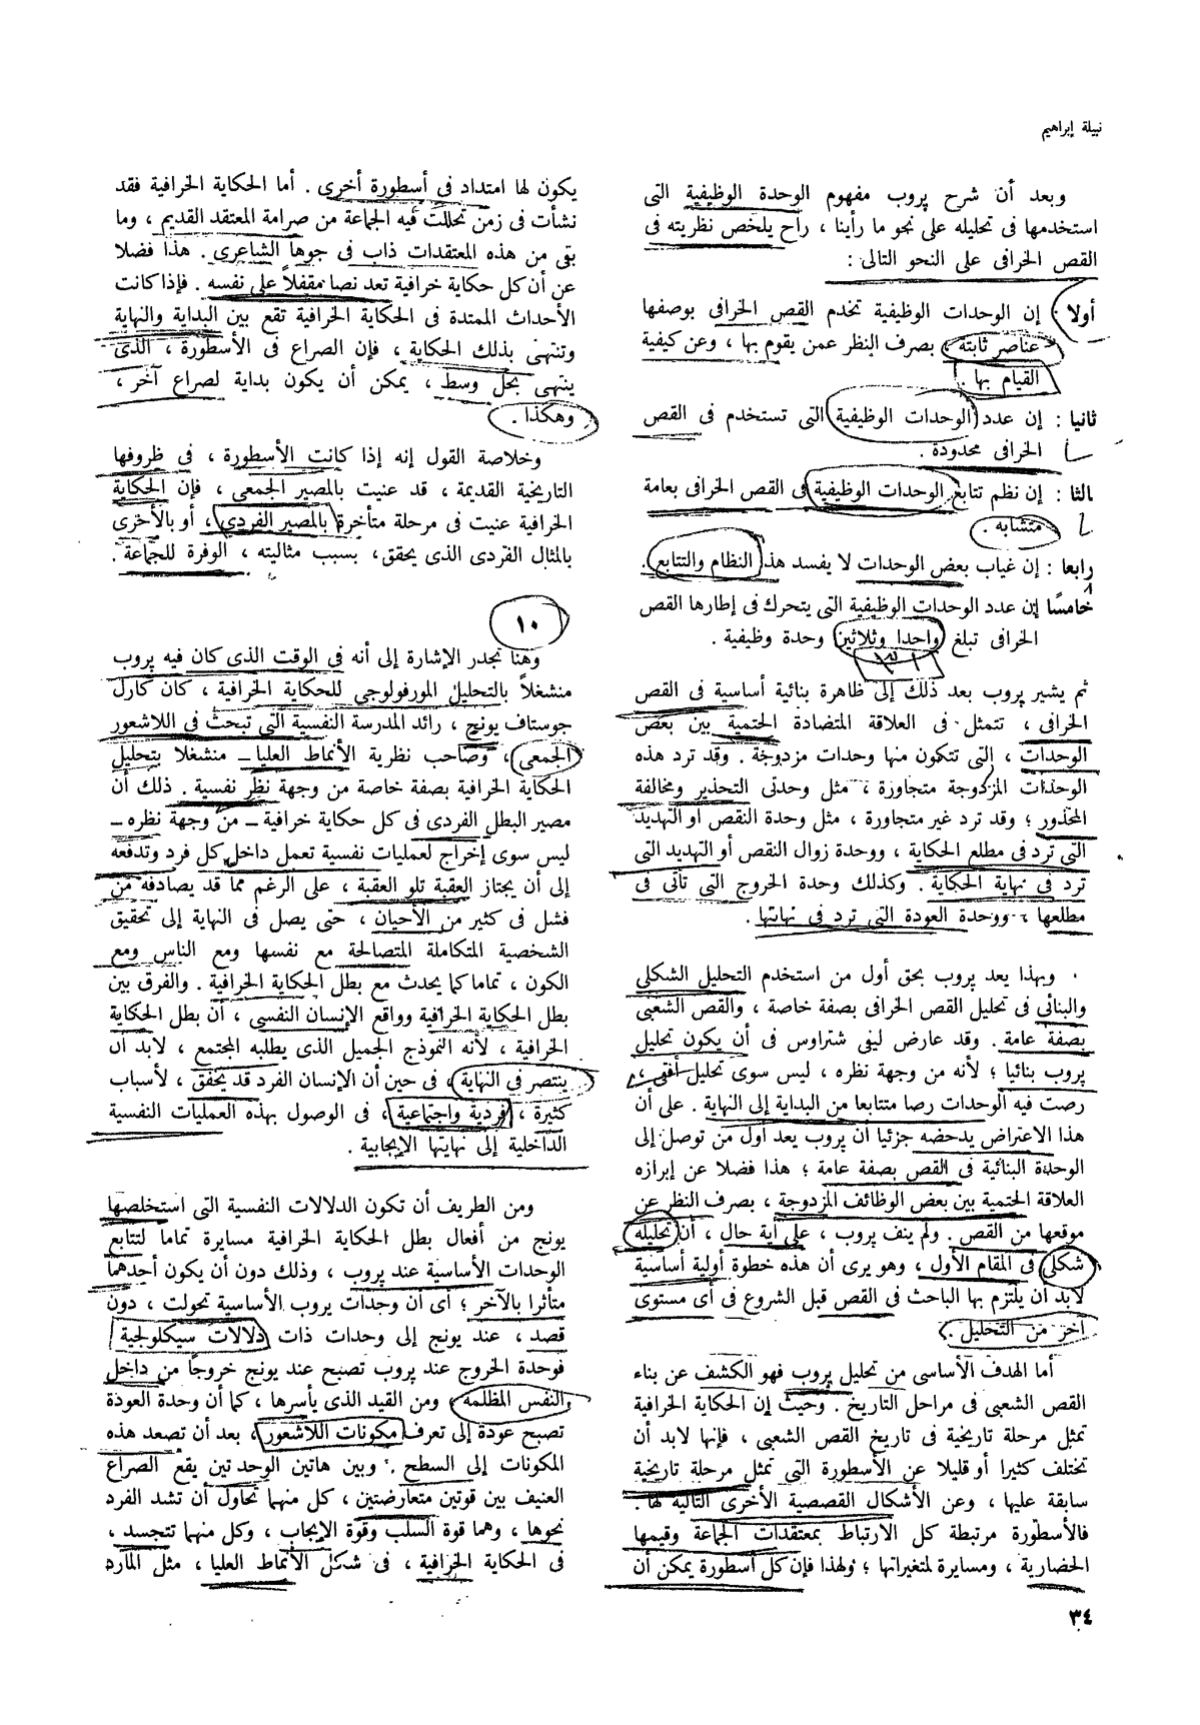 نبيلة إبراهيم
وبعد أن شرح پروب مفهوم الوحدة الوظيفية التى
استخدمها فى تحليله على نحو ما رأينا ، راح يلخص نظريته فى
القص الخرافى على النحو التالى :
أولا : إن الوحدات الوظيفية تخدم القص الخرافى بوصفها
عناصر ثابتة ، بصرف النظر عمن يقوم بها ، وعن كيفية
القيام بها .
ثانيا : إن عدد الوحدات الوظيفية التى تستخدم فى القص
الخرافى محدودة .
الثا : إن نظم تتابع الوحدات الوظيفية فى القص الخرافى بعامة
متشابه .
رابعا : إن غياب بعض الوحدات لا يفسد هذا النظام والتتابع .
خامسًا إن عدد الوحدات الوظيفية التى يتحرك فى إطارها القص
الخرافى تبلغ واحدا وثلاثين وحدة وظيفية .
٣١
ثم يشير پروب بعد ذلك إلى ظاهرة بنائية أساسية فى القص
الخرافى ، تتمثل فى العلاقة المتضادة الحتمية بين بعض
الوحدات ، التى تتكون منها وحدات مزدوجة . وقد ترد هذه
الوحدات المزدوجة متجاورة ، مثل وحدتى التحذير ومخالفة
المحذور ؛ وقد ترد غير متجاورة ، مثل وحدة النقص او التهديد
التى ترد فى مطلع الحكاية ، ووحدة زوال النقص أو التهديد التى
ترد فى نهاية الحكاية . وكذلك وحدة الخروج التى تأتى فى
مطلعها ، ووحدة العودة التى ترد فى نهايتها .
وبهذا يعد پروب بحق أول من استخدم التحليل الشكلى
والبنائى فى تحليل القص الخرافى بصفة خاصة ، والقص الشعبى
بصفة عامة . وقد عارض ليفى شتراوس فى أن يكون تحليل
پروب بنائيا ؛ لأنه من وجهة نظره ، ليس سوى تحليل أفقى ،
رصت فيه الوحدات رصا متتابعا من البداية إلى النهاية . على أن
هذا الاعتراض يدحضه جزئيا أن پروب يعد أول من توصل إلى
الوحدة البنائية فى القص بصفة عامة ؛ هذا فضلا عن إبرازه
العلاقة الحتمية بين بعض الوظائف المزدوجة ، بصرف النظر عن
موقعها من القص . ولم ينف پروب ، على أية حال ، أن تحليله
شكلى فى المقام الأول ، وهو يرى أن هذه خطوة أولية أساسية
لابد أن يلتزم بها الباحث فى القص قبل الشروع فى أى مستوى
آخر من التحليل .
أما الهدف الأساسى من تحليل پروب فهو الكشف عن بناء
القص الشعبى فى مراحل التاريخ . وحيث إن الحكاية الخرافية
تمثل مرحلة تاريخية فى تاريخ القص الشعبى ، فإنها لابد أن
تختلف كثيرا أو قليلا عن الأسطورة التى تمثل مرحلة تاريخية
سابقة عليها ، وعن الأشكال القصصية الأخرى التالية لها .
فالأسطورة مرتبطة كل الارتباط بمعتقدات الجماعة وقيمها
الحضارية ، ومسايرة لمتغيراتها ؛ ولهذا فإن كل أسطورة يمكن أن
يكون لها امتداد فى أسطورة أخرى . أما الحكاية الخرافية فقد
نشأت فى زمن تحللت فيه الجماعة من صرامة المعتقد القديم ، وما
بقى من هذه المعتقدات ذاب فى جوها الشاعرى . هذا فضلا
عن أن كل حكاية خرافية تعد نصا مقفلاً على نفسه . فإذا كانت
الأحداث الممتدة فى الحكاية الخرافية تقع بين البداية والنهاية
وتنتهى بذلك الحكاية ، فإن الصراع فى الأسطورة ، الذى
ينتهى بحل وسط ، يمكن أن يكون بداية لصراع آخر ،
وهكذا .
وخلاصة القول إنه إذا كانت الأسطورة ، فى ظروفها
التاريخية القديمة ، قد عنيت بالمصير الجمعى ، فإن الحكاية
الخرافية عنيت فى مرحلة متأخرة بالمصير الفردى ، أو بالأخرى
بالمثال الفردى الذى يحقق، بسبب مثاليته ، الوفرة للجماعة .
١٠
وهنا تجدر الإشارة إلى أنه فى الوقت الذى كان فيه پروب
منشغلاً بالتحليل المورفولوجى للحكاية الخرافية ، كان كارل
جوستاف يونج ، رائد المدرسة النفسية التى تبحث فى اللاشعور
الجمعى ، وصاحب نظرية الأنماط العليا ــ منشغلا بتحليل
الحكاية الخرافية بصفة خاصة من وجهة نظر نفسية . ذلك أن
مصير البطل الفردى فى كل حكاية خرافية ــ من وجهة نظره ــ
ليس سوى إخراج لعمليات نفسية تعمل داخل كل فرد وتدفعه
إلى أن يجتاز العقبة تلو العقبة ، على الرغم مما قد يصادفه من
فشل فى كثير من الأحيان ، حتى يصل فى النهاية إلى تحقيق
الشخصية المتكاملة المتصالحة مع نفسها ومع الناس ومع
الكون ، تماما كما يحدث مع بطل الحكاية الخرافية . والفرق بين
بطل الحكاية الخرافية وواقع الإنسان النفسى ، أن بطل الحكاية
الخرافية ، لأنه النموذج الجميل الذى يطلبه المجتمع ، لابد أن
ينتصر فى النهاية ، فى حين أن الإنسان الفرد قد يخفق ، لأسباب
كثيرة ، فردية واجتماعية ، فى الوصول بهذه العمليات النفسية
الداخلية إلى نهايتها الإيجابية .
ومن الطريف أن تكون الدلالات النفسية التى استخلصها
يونج من أفعال بطل الحكاية الخرافية مسايرة تماما لتتابع
الوحدات الأساسية عند پروب ، وذلك دون أن يكون أحدهما
متأثرا بالآخر ؛ أى أن وحدات پروب الأساسية تحولت ، دون
قصد ، عند يونج إلى وحدات ذات دلالات سيكلوجية
فوحدة الخروج عند پروب تصبح عند يونج خروجًا من داخل
النفس المظلمة ، ومن القيد الذى يأسرها ، كما أن وحدة العودة
تصبح عودة إلى تعرف مكونات اللاشعور ، بعد أن تصعد هذه
المكونات إلى السطح . وبين هاتين الوحدتين يقع الصراع
العنيف بين قوتين متعارضتين ، كل منهما تحاول أن تشد الفرد
نحوها ، وهما قوة السلب وقوة الإيجاب ، وكل منهما تتجسد ،
فى الحكاية الخرافية ، فى شكل الأنماط العليا ، مثل المارد
٣٤